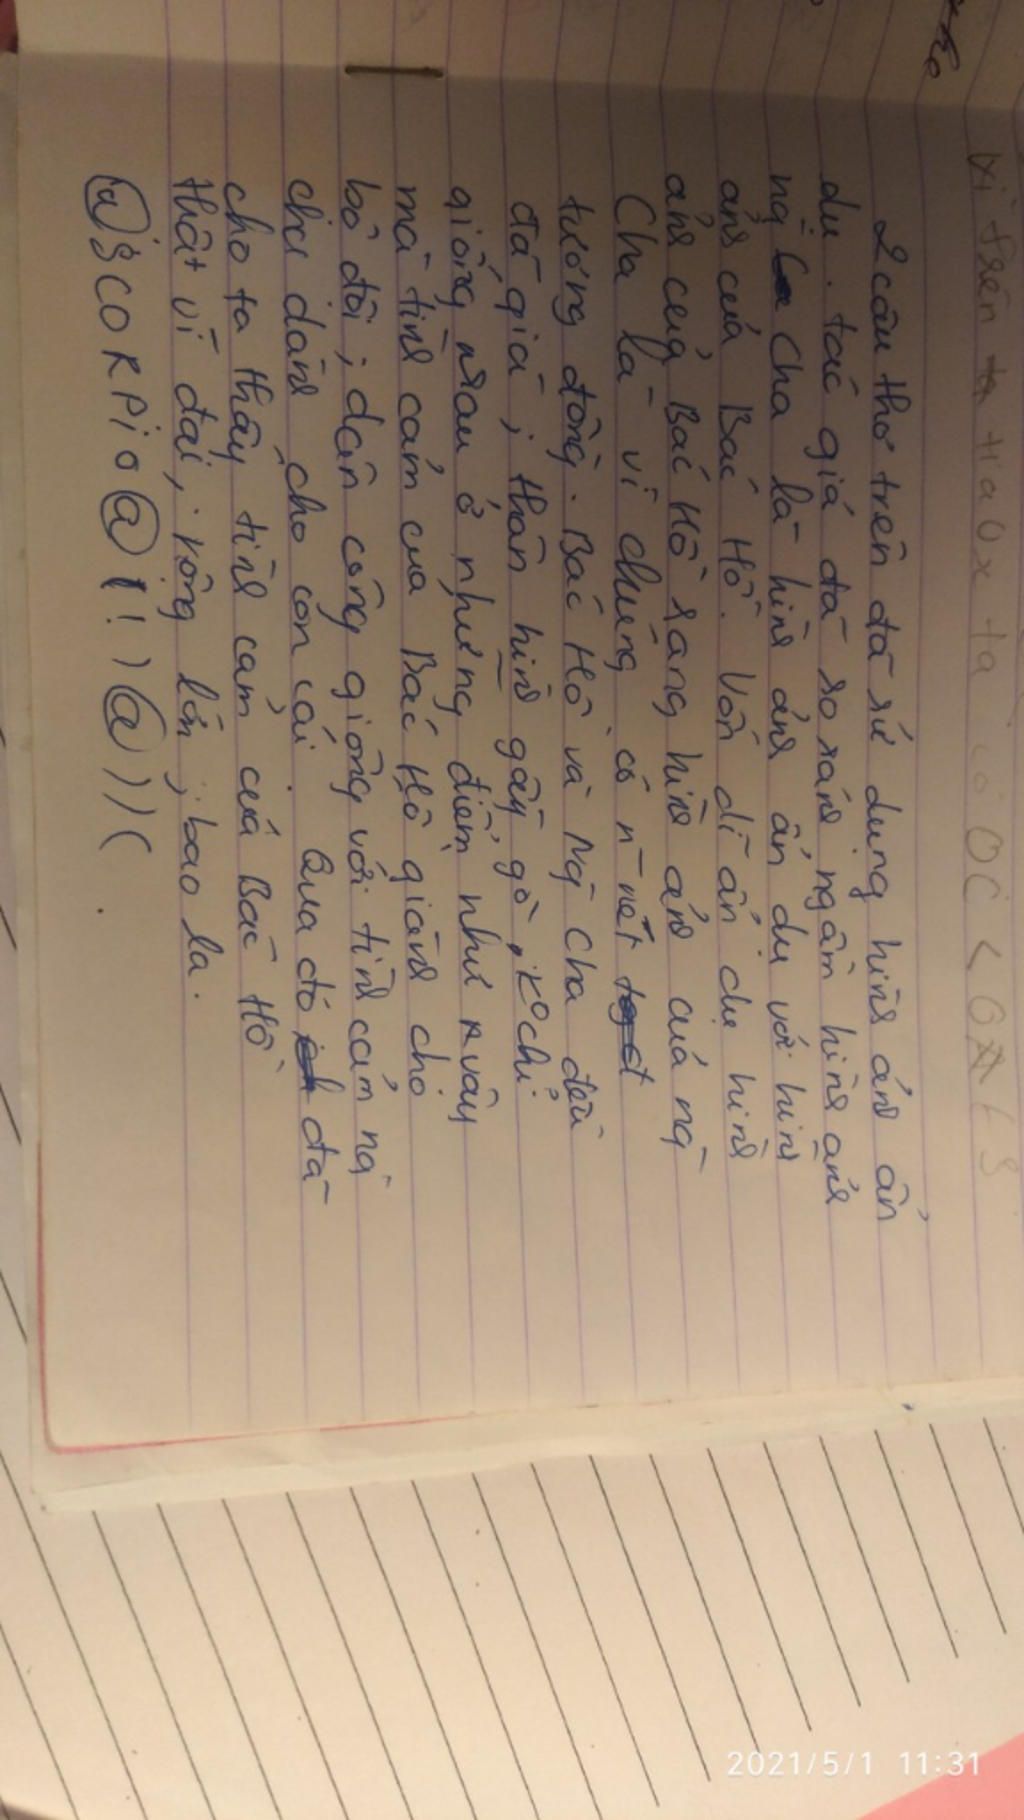 vì trên tia Ox ta có OC < OA
2 câu thơ trên đã sử dụng hình ảnh ẩn
dụ. tác giả đã so sánh ngầm hình ảnh
ng̀ cha là hình ảnh ẩn dụ với hình
ảnh của Bác Hồ. Vốn dĩ ẩn dụ hình
ảnh của Bác Hồ sang hình ảnh của ng̀
Cha là vì chúng có n~ nét
tương đồng. Bác Hồ và Ng̀ cha đều
đã già, thân hình gầy gò, Ko chỉ
giống nhau ở những điểm như vậy
mà tình cảm của Bác Hồ giành cho
bộ đội, dân công giống với tình cảm ng̀
cha dành cho con cái. Qua đó đã
cho ta thấy tình cảm của Bác Hồ
thật vĩ đại, rộng lớn, bao la.
@ SCORPio@!!)@))(
2021/5/1 11:31